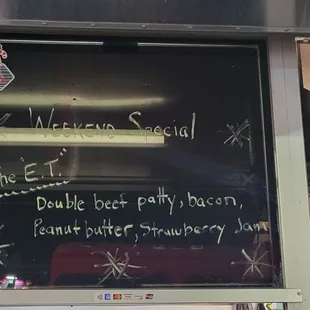 Weekend Special
The "E.T."
Double beef patty, bacon,
Peanut butter, Strawberry Jam